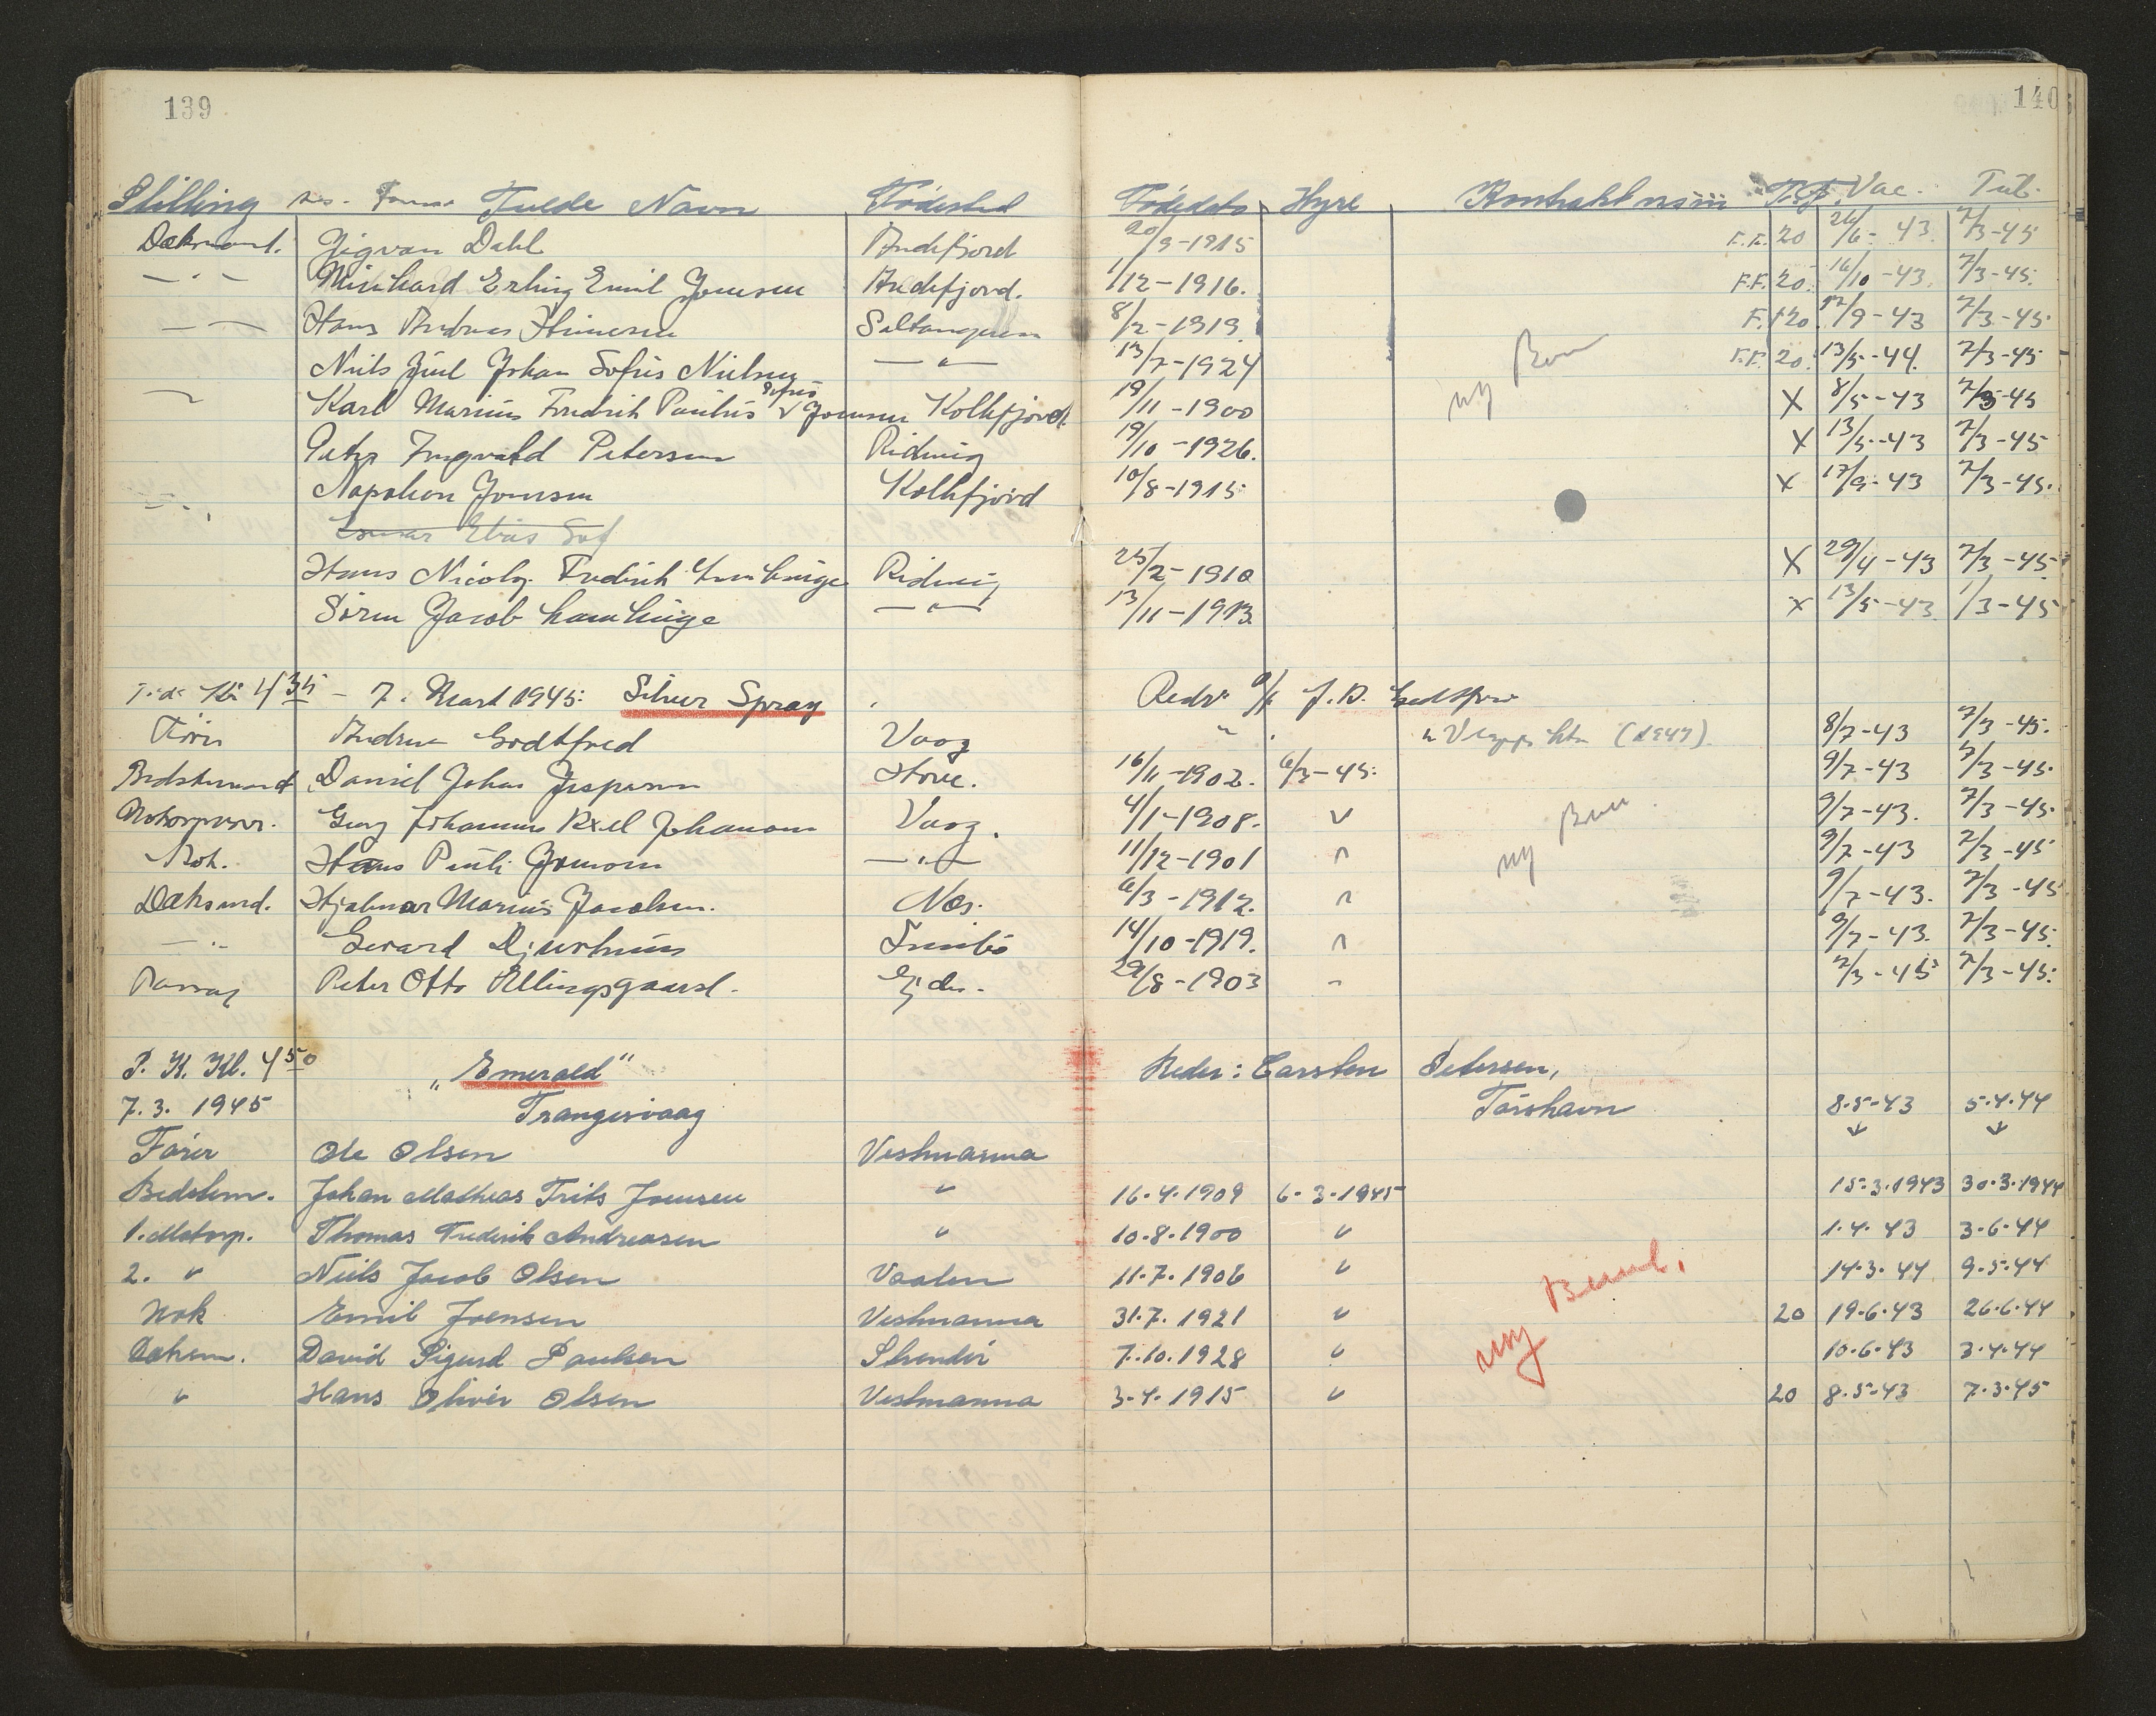 139
140
Stilling Fulde Navn Fødested Fødedato Hyre Tgf. Vac. Tub.
Dækmand. Jigvan Dahl Andefjord 20/9-1915 F.F. 20 26/6-43. 7/3-45
— " — Erling Emil Joensen Andefjord. 1/12-1916. F.F. 20. 16/10-43. 7/3-45.
— " — Hans Andreas 8/2-1919. F.F. 20. 17/9-43 7/3-45.
Niels Juul Johan Sofus Nielsen — " — 13/7-1924 F.F. 20. 13/5-44. 7/3-45
Karl Marius Fredrik Paulus Sofus Joensen Kollefjord. 19/11-1900 X 8/5-43 7/3-45
Peter Ingvald Petersen Ridevig 19/10-1926. X 13/5-43 7/3-45
Napoleon Joensen Kollefjord 10/8-1915 X 17/9-43 7/3-45.
Elias Sof
Hans Nicolaj Fredrik Ridevig 25/2-1910 X 29/4-43 7/3-45
Søren Jacob Lamhauge — " — 13/11-1913. X 13/5-43. 1/3-45
ny
Kl. 4 35 - 7. Mart 1945. Silver Spray Reder J. D.
Fører Andrew Godtfred Vaag " (1947). 8/7-43 7/3-45.
Bedstemand Daniel Johan Jespersen Hove. 16/11-1902. 6/3-45. 9/7-43 7/3-45.
Motorpasser. Georg Johannes Axel Johansen Vaag. 4/1-1908. " 9/7-43. 7/3-45.
Kok. Hans Pauli Joensen — " — 11/12-1901 " 9/7-43 7/3-45
Dæksmd. Hjalmar Marius Jacobsen. Næs. 6/3-1912. " 9/7-43. 7/3-45
— " Gerard Djurhuus Sumbø 14/10-1919. " 9/7-43. 7/3-45.
Passag Peter Otto Ellingsgaard. Ejde. 29/8-1903 " 7/3-45 7/3-45.
ny
P. K. Kl. 4 50 "Emerald" Reder: Carsten Petersen,
7.3. 1945 Trangisvaag Tórshavn 8.5-43 5.4.44
Fører Ole Olsen Vestmanna
Bedstem. Johan Mathias Frits Joensen " 16.4.1909 6-3-1945 15.3.1943 30.3.1944
1. Motorp. Thomas Frederik Andreasen " 10.8.1900 " 1.4.43 3.6.44
2. " Niels Jacob Olsen Vaalen 11.7.1906 " 14.3.44 9.5.44
Kok Emil Joensen Vestmanna 31.7.1921 " 20 19.6.43 26.6.44
Dæksm. David Sigurd Poulsen Strender 7.10.1928 " 10.6.43 3.4.44
" Hans Oliver Olsen Vestmanna 3.4.1915 " 20 8.5-43 7.3.45
ny